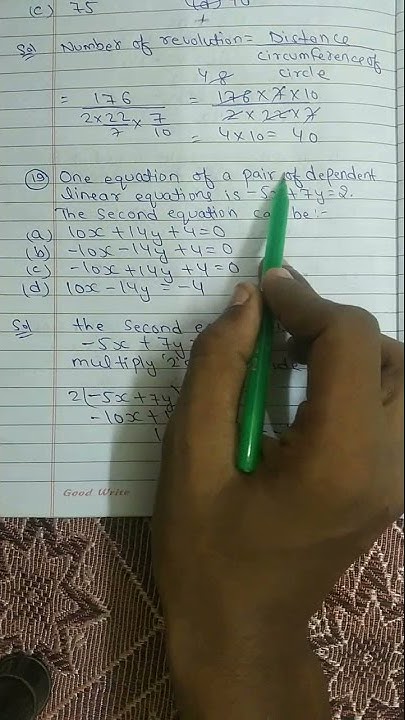 (c) 75
Sol Number of revolution = Distance
circumference of
circle
4 8
= 176 = 176 × 7 × 10
2 × 22 × 7 2 × 22 × 7
7 10
= 4 × 10 = 40
(19) One equation of a pair of dependent
linear equations is -5x + 7y = 2.
The second equation can be:-
(a) 10x + 14y + 4 = 0
(b) -10x - 14y + 4 = 0
(c) -10x + 14y + 4 = 0
(d) 10x - 14y = -4
Sol the second
-5x + 7y
multiply '2'
2(-5x + 7y)
-10x +
Good Write